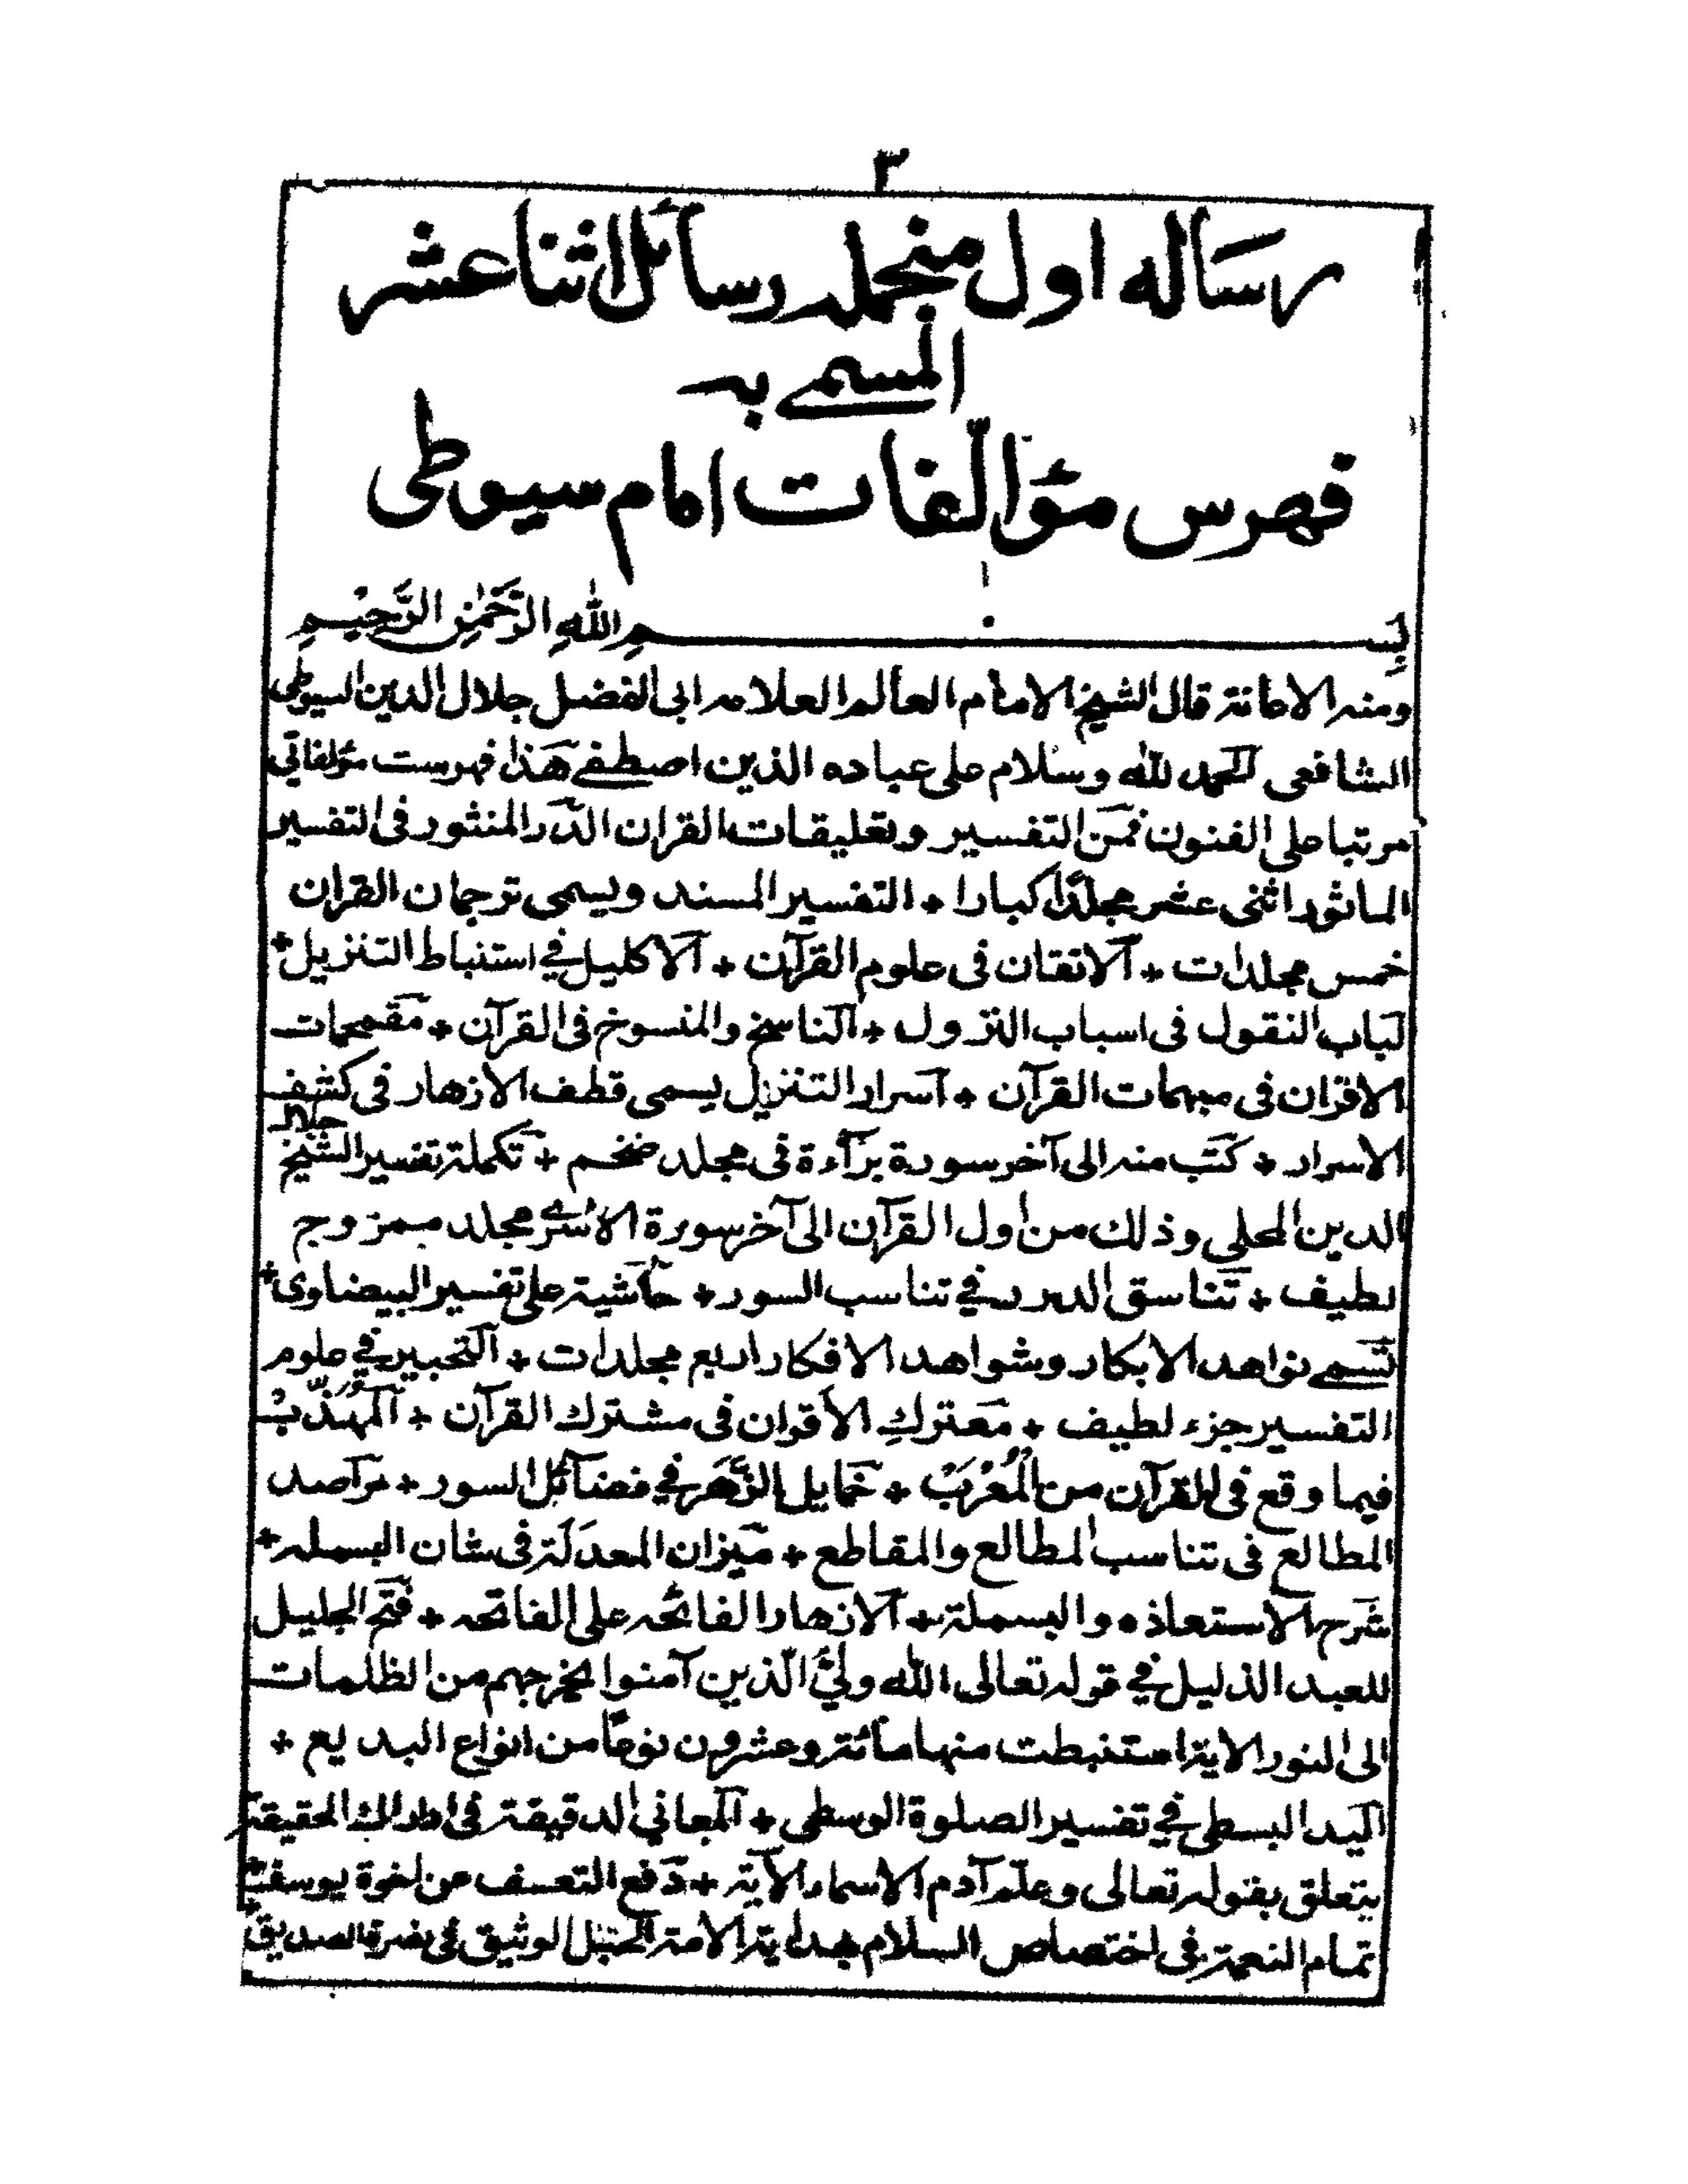 ٣
رساله اول منجمله رسائل اثنا عشر
المسمے به
فهرس مؤالّفات امام سيوطى
بسم الله الرحمٰن الرَّحِيْمِ
ومنه الاعانة قال الشيخ الامام العالم العلامه ابى الفضل جلال الدين السيوطى
الشافعى الحمد لله وسلام على عباده الذين اصطفے هذا فهرست مؤلفاتي
مرتبا على الفنون فمن التفسير وتعليقات القران الدّر المنثور فى التفسير
الماثور اثنى عشر مجلدًا كبارا + التفسير المسند ويسمى ترجمان القران
خمس مجلدات + الاتقان فى علوم القرآن + الاكليل في استنباط التنزيل +
لباب النقول فى اسباب النزول + الناسخ والمنسوخ فى القرآن + مقحمات
الاقران فى مبهمات القرآن + اسرار التنزيل يسمى قطف الازهار فى كشف
الاسرار + كتب منه الى آخر سورة برآءة فى مجلد ضخم + تكملة تفسير الشيخ جلال
الدين المحلى وذلك من اول القرآن الى آخر سورة الاسرٰے مجلد ممزوج
لطيف + تناسق الدرر في تناسب السور + حاشية على تفسير البيضاوى +
تسمے نواهد الابكار وشواهد الافكار اربع مجلدات + التحبير في علوم
التفسير جزء لطيف + معترك الاقران فى مشترك القرآن + المُهذّب
فيما وقع فى القرآن من المُعْرَبْ + خمايل الزَّهر في فضآئل السور + مراصد
المطالع فى تناسب المطالع والمقاطع + ميزان المعدلة فى شان البسمله +
شرح الاستعاذه والبسملة + الازهار الفائحه على الفاتحه + فتح الجليل
للعبد الذليل في قوله تعالى الله وليُّ الّذين آمنوا يخرجهم من الظلمات
الى النور الاية استنبطت منها مائة وعشرون نوعًا من انواع البديع +
اليد البسطى في تفسير الصلوة الوسطى + المعاني الدقيقة فى ادراك الحقيقة
يتعلق بقوله تعالى وعلّم آدم الاسماء الآية + دفع التعسف عن اخوة يوسف +
تمام النعمة فى اختصاص السلام بهداية الامة الحبل الوثيق فى نصرة الصديق